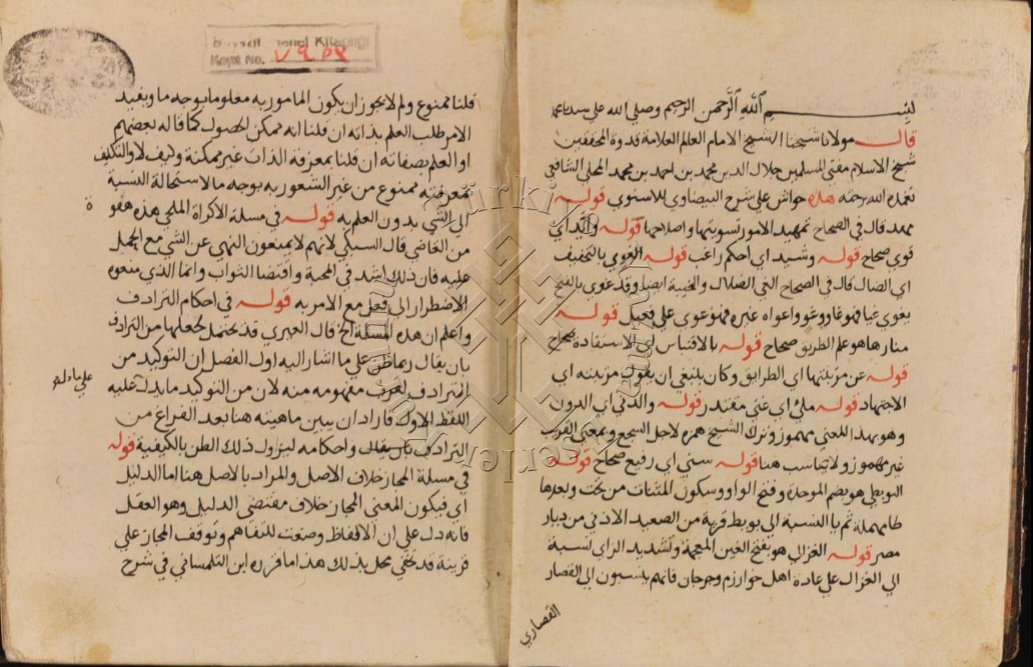 بسم الله الرحمن الرحيم وصلى الله على سيدنا محمد
قال مولانا شيخنا الشيخ الامام العالم العلامة قدوة المحققين
شيخ الاسلام مفتي المسلمين جلال الدين محمد بن احمد بن محمد المحلي الشافعي
تغمده الله برحمته هذه حواش على شرح البيضاوي للاسنوي قوله
مهد قال في الصحاح تمهيد الامور تسويتها واصلاحها قوله وأيّد أي
قوي صحاح قوله وشيد اي احكم راغب قوله الغوي بالتخفيف
اي الضال قال في الصحاح الغي الضلال والخيبة ايضا وقد غوى بالفتح
يغوي غيا فهو غاو وغو واغواه غيره فهو غوي على فعيل قوله
منارها هو علم الطريق صحاح قوله بالاقتباس اي الاستفادة صحاح
قوله عن مزيتها اي الطرايق وكان ينبغي ان يقول مزيته اي
الاجتهاد قوله ملئ اي غني مقتدر قوله والدني اي الدون
وهو بهذا المعنى مهموز وترك الشيخ همزه لاجل السجع وبمعنى القريب
غير مهموز ولا يناسب هنا قوله سني اي رفيع صحاح قوله
البويطي هو بضم الموحدة وفتح الواو وسكون المثناة من تحت وبعدها
طا مهملة ثم يا النسبة الى بويط قرية من الصعيد الادنى من ديار
مصر قوله الغزالي هو بفتح الغين المعجمة وتشديد الزاي نسبة
الى الغزال على عادة اهل خوارزم وجرجان فانهم ينسبون الى القصار
القصاري
قلنا ممنوع ولم لا يجوز ان يكون المامور به معلوما بوجه ما ويفيد
الامر طلب العلم بذاته ان قلنا انه ممكن الحصول كما قاله بعضهم
او العلم بصفاته ان قلنا بمعرفة الذات غير ممكنة وكيف لا والتكليف
بمعرفته ممنوع من غير الشعور به بوجه ما لاستحالة النسبة
الى الشي بدون العلم به قوله في مسلة الاكراة الملجي هذه هفو
ة
من القاضي قال السبكي لانهم لا يمنعون النهي عن الشي مع الحمل
عليه فان ذلك اشد في المحبة واقتضا الثواب وانما الذي منعوه
الاضطرار الى فعل مع الامر به قوله في احكام الترادف
واعلم ان هذه المسئلة الخ قال العبري قد يحتمل جعلها من الترادف
بان يقال على ما اشار اليه اول الفصل ان التوكيد من
الترادف لقرب مفهومه منه لان من التوكيد ما يدل عليه
اللفظ الاول فاراد ان يبين ماهيته هنا بعد الفراغ من
الترادف واحكامه ليزول ذلك الظن بالكيفية قوله
في مسلة المجاز خلاف الاصل والمراد بالاصل هنا اما الدليل
اي فيكون المعنى المجاز خلاف مقتضى الدليل وهو العقل
فانه دل على ان الالفاظ وضعت للتفاهم وتوقف المجاز على
قرينة قد تخفى مخل بذلك هذا ما قرره ابن التلمساني في شرح
Kayıt No. ٧٩٥٤